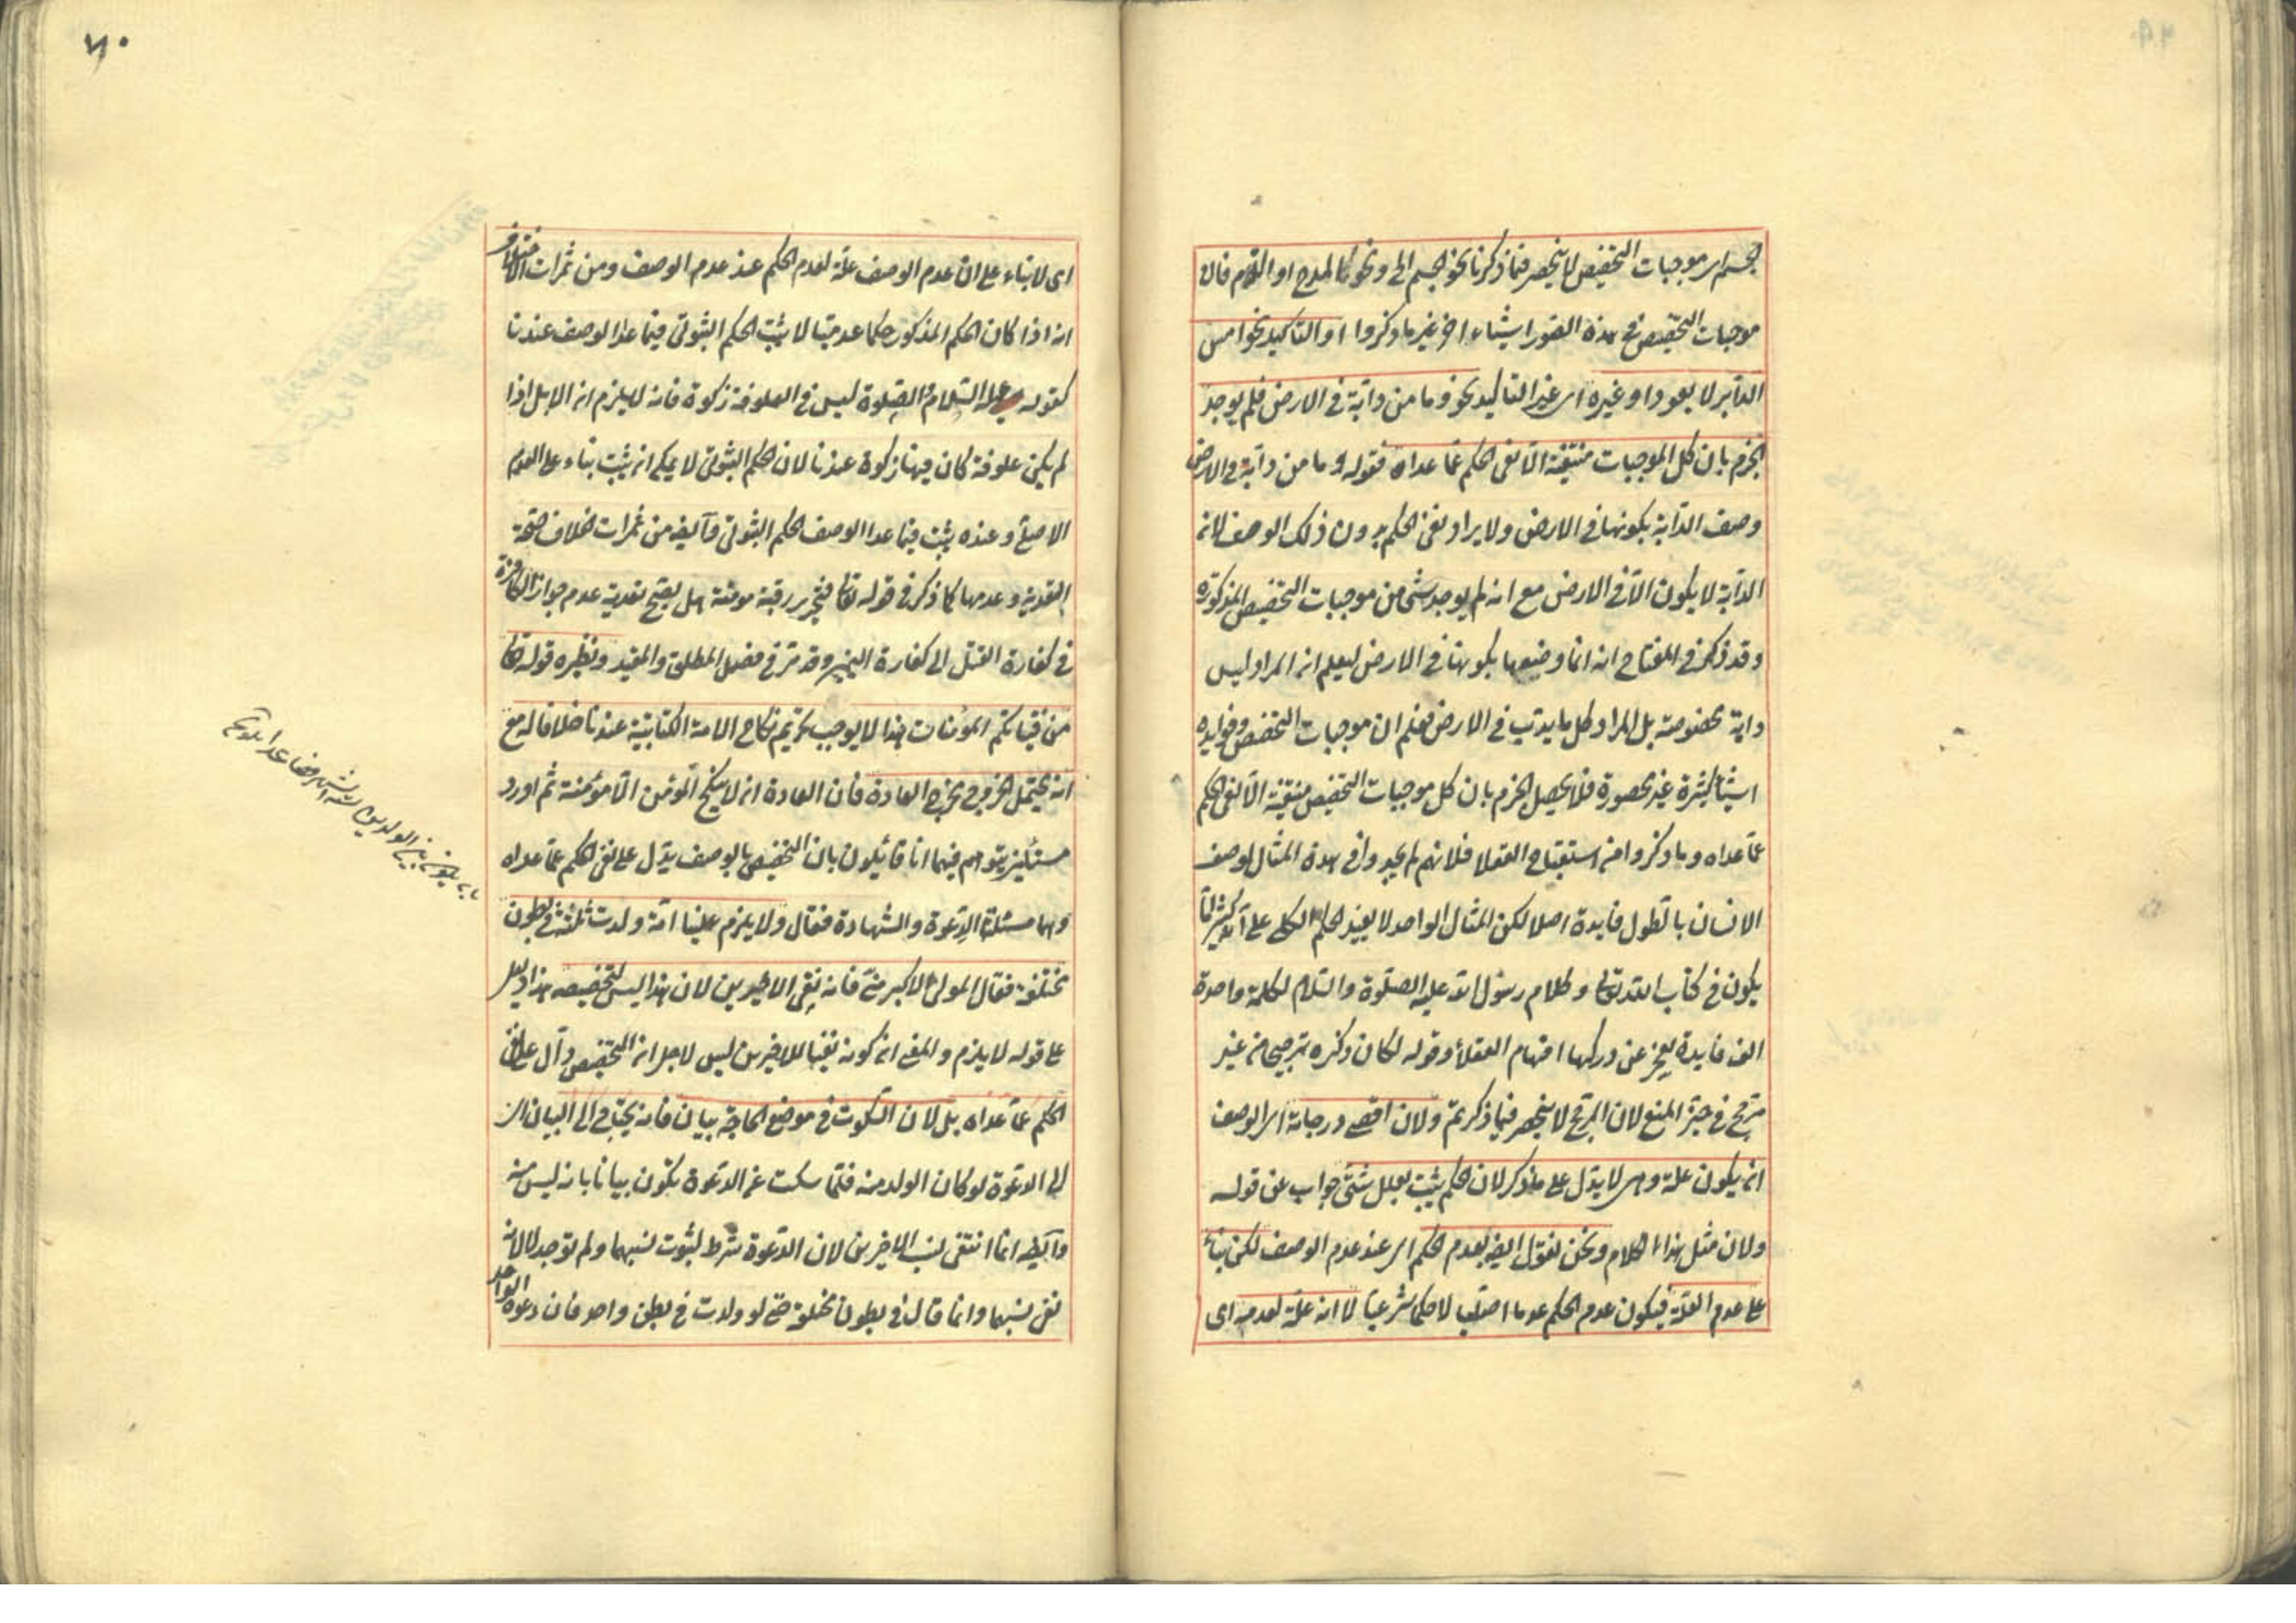 الجسم اى موجبات التخصيص لا ينحصر فيما ذكرنا نحو الجسم الى ونحو كالمدح او الذم فان
موجبات التخصيص فى هذه الصور اشياء اخر غير ما ذكروا او التاكيد نحو امس
الدابر لا يعود او غيره اى غير التاكيد نحو وما من دابة فى الارض فلم يوجد
الجزم بان كل الموجبات منتفية الا نفى الحكم عما عداه فقوله وما من دابة فى الارض
وصف الدابة بكونها فى الارض ولا يراد نفى الحكم بدون ذلك الوصف لانه
الدابة لا يكون الا فى الارض مع انه لم يوجد شئ من موجبات التخصيص المذكورة
وقد ذكر فى المفتاح انه انما وصفها بكونها فى الارض ليعلم ان المراد ليس
دابة مخصوصة بل المراد كل ما يدب فى الارض فعلم ان موجبات التخصيص وفوايده
اشياء كثيرة غير محصورة فلا يحصل الجزم بان كل موجبات التخصيص منتفية الا نفى الحكم
عما عداه وما ذكروا من استقباح العقلا فلانهم لم يجدوا فى هذه المثال لوصف
الانسان بالطول فايدة اصلا لكن المثال الواحد لا يفيد الحكم الكلى على انه كثيرا ما
يكون فى كتاب الله تعالى وكلام رسول الله عليه الصلوة والسلام لكلمة واحدة
الف فايدة يعجز عن دركها افهام العقلاء وقوله لكان ذكره ترجيحا من غير
مرجح فى حيز المنع لان المرجح لا ينحصر فيما ذكرتم ولان اقصى درجاته اى الوصف
ان يكون علة وهى لا يدل على ما ذكر لان الحكم يثبت بعلل شتى جواب عن قوله
ولان مثل هذا الكلام ونحن نقول ايضا بعدم الحكم اى عند عدم الوصف لكن بناء
على عدم العلة فيكون عدم الحكم عدما اصليا لا حكما شرعيا لا انه علة لعدمه اى
٧٠
اى لا بناء على ان عدم الوصف علة لعدم الحكم عند عدم الوصف ومن ثمرات الاختلاف
انه اذا كان الحكم المذكور حكما عدميا لا يثبت الحكم الثبوتى فيما عدا الوصف عندنا
كقوله عليه السلام والصلوة ليس فى العلوفة زكوة فانه لا يلزم ان الابل اذا
لم يكن علوفة كان فيها زكوة عندنا لان الحكم الثبوتى لا يمكن ان يثبت بناء على العدم
الاصلى وعنده يثبت فيما عدا الوصف الحكم الثبوتى وايضا من ثمرات الخلاف صحة
التعدية وعدمها كما ذكر فى قوله تعالى فتحرير رقبة مومنة هل يصح تعدية عدم جواز الكافرة
فى كفارة القتل الى كفارة اليمين وقد مر فى فصل المطلق والمقيد ونظيره قوله تعالى
من فتياتكم المؤمنات هذا لا يوجب تحريم نكاح الامة الكتابية عندنا خلافا له مع
انه يحتمل الخروج مخرج العادة فان العادة ان لا ينكح المؤمن الا مؤمنة ثم اورد
مسئلتين يتوهم فيهما انا قائلون بان التخصيص بالوصف يدل على نفى الحكم عما عداه
وهما مسئلتا الدعوة والشهادة فقال ولا يلزم علينا امة ولدت ثلثة فى بطون
مختلفة فقال المولى الاكبر منى فانه نفى الاخيرين لان هذا ليس لتخصيصه هذا دليل
على قوله لا يلزم والمعنى ان كونه نفيا للاخيرين ليس لاجل ان التخصيص دال على نفى
الحكم عما عداه بل لان السكوت فى موضع الحاجة بيان فانه يحتاج الى البيان اى
الى الدعوة لو كان الولد منه فلما سكت عن الدعوة يكون بيانا بانه ليس منه
وايضا انما انتفى نسب الاخيرين لان الدعوة شرط لثبوت نسبهما ولم توجد لا لانه
نفى نسبهما وانما قال فى بطون مختلفة حتى لو ولدت فى بطن واحد فان دعوة الواحد